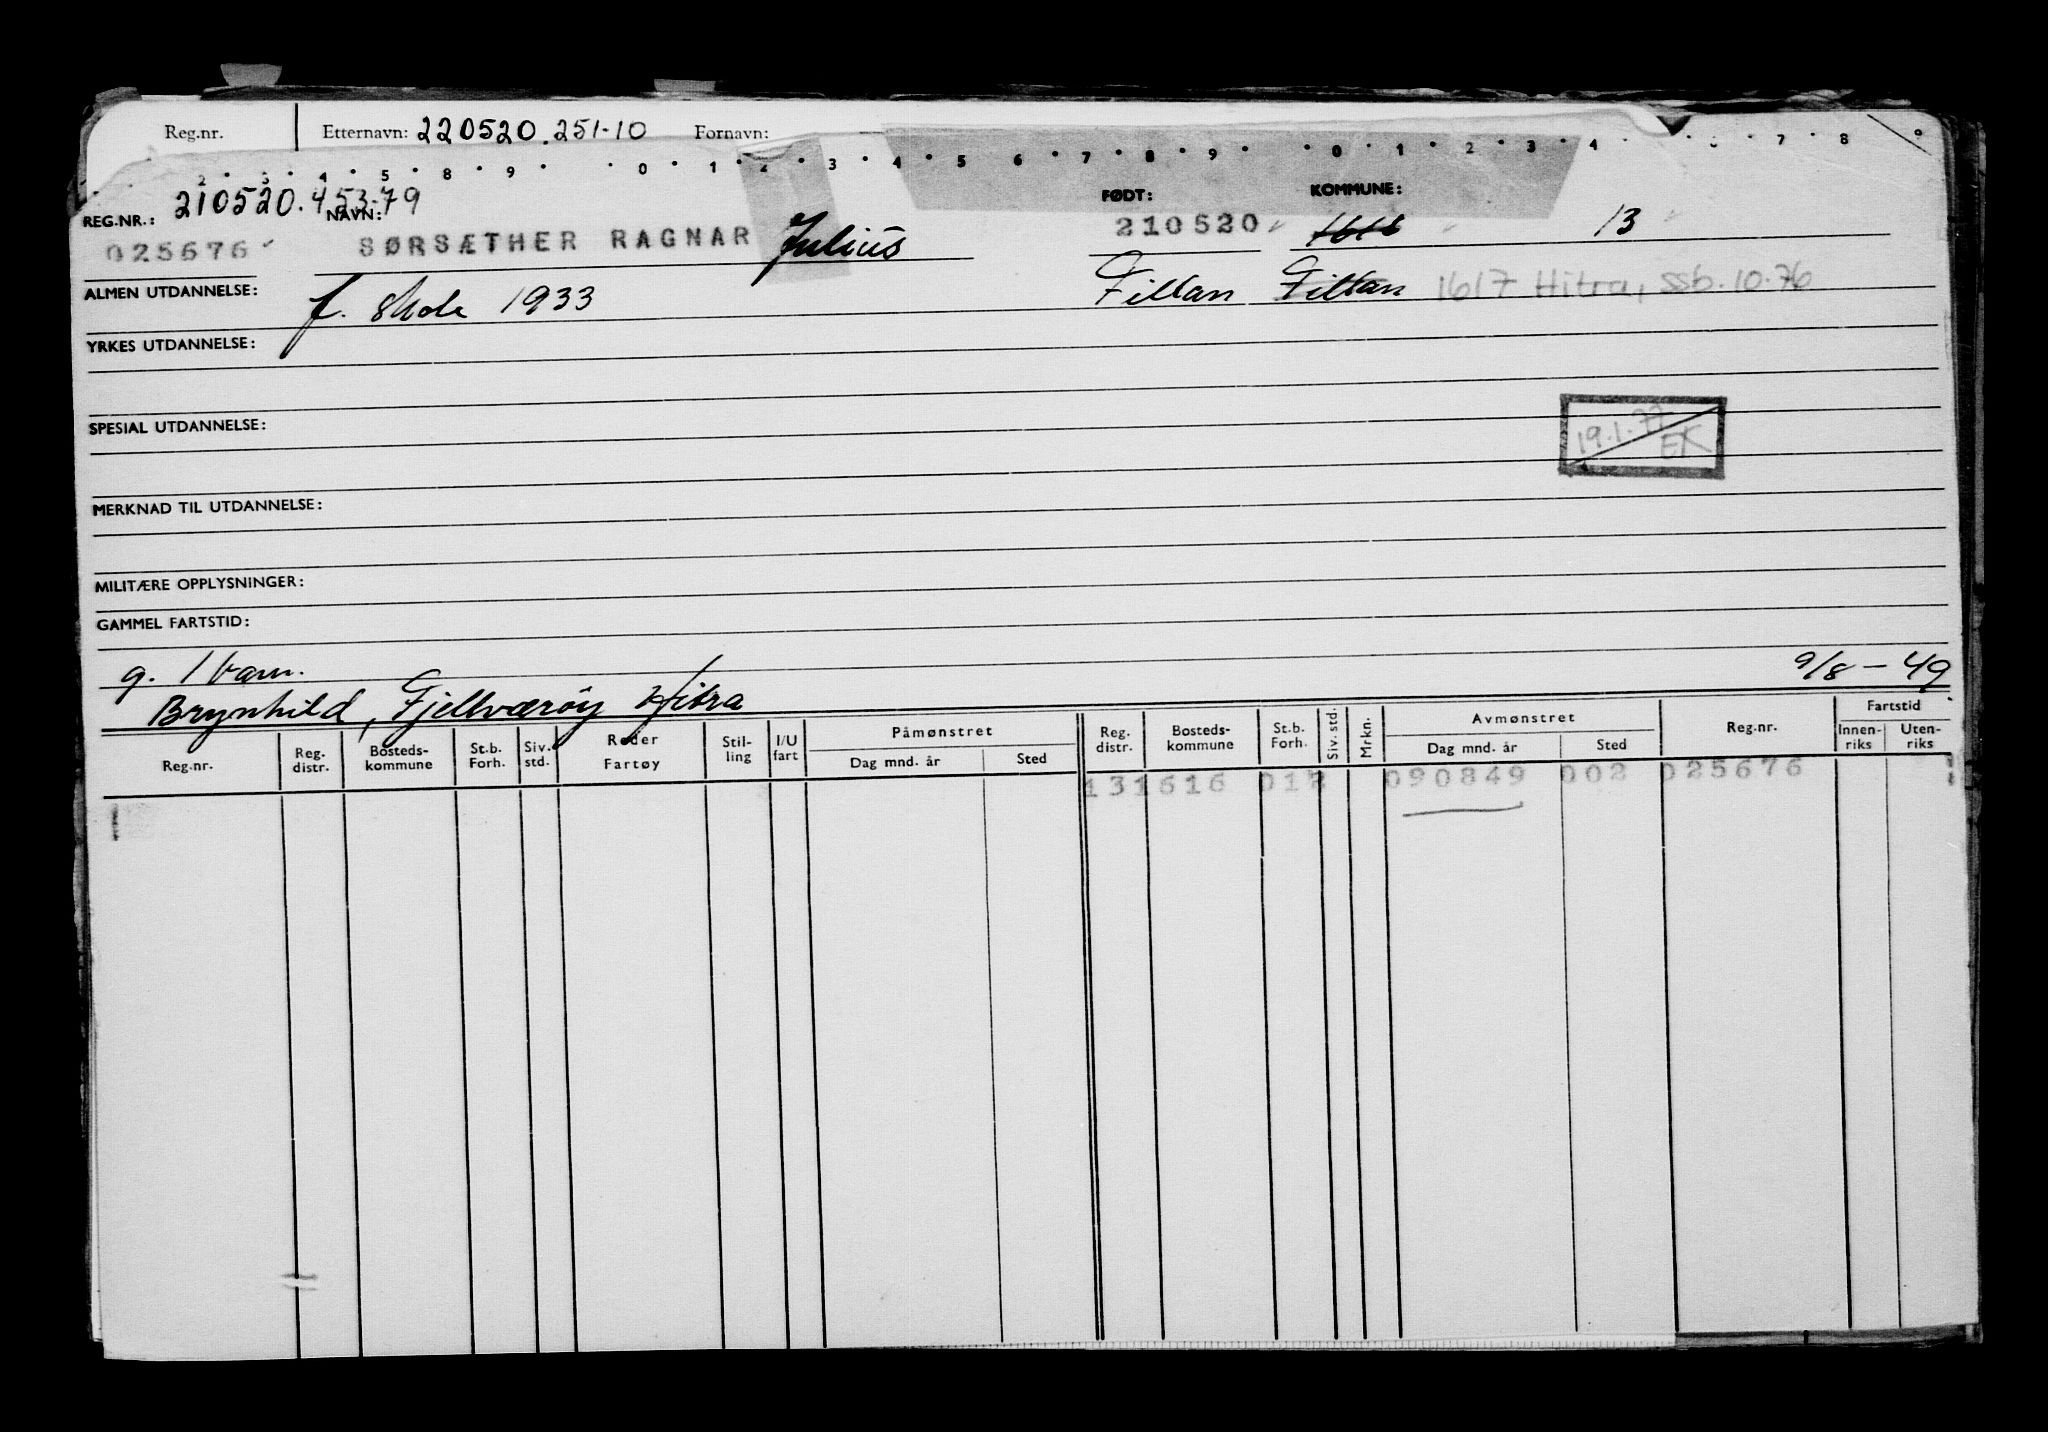 Reg.nr. Etternavn: 220520.251-10 Fornavn:
2 3 4 5 8 9 0 1 2 3 4 5 6 7 8 9 0 1 2 3 4 7 8 9
REG.NR.: 210520.453-79 NAVN: FØDT: KOMMUNE:
025676 SØRSÆTHER RAGNAR Julius 210520 1616 13
ALMEN UTDANNELSE: f. skole 1933 Fillan Fillan 1617 Hitra, ssb. 10.76
YRKES UTDANNELSE:
SPESIAL UTDANNELSE: 19.1.77 EK
MERKNAD TIL UTDANNELSE:
MILITÆRE OPPLYSNINGER:
GAMMEL FARTSTID:
g. 1 barn. 9/8-49
Brynhild, Fjellværøy Hitra
Reg.nr. Reg. distr. Bosteds- kommune St.b. Forh. Siv. std. Reder Fartøy Stil- ling I/U fart Påmønstret Dag mnd. år Sted Reg. distr. Bosteds- kommune St.b. Forh. Siv. std. Mrkn. Avmønstret Dag mnd. år Sted Reg.nr. Fartstid Innen- riks Uten- riks
131616 012 090849 002 025676